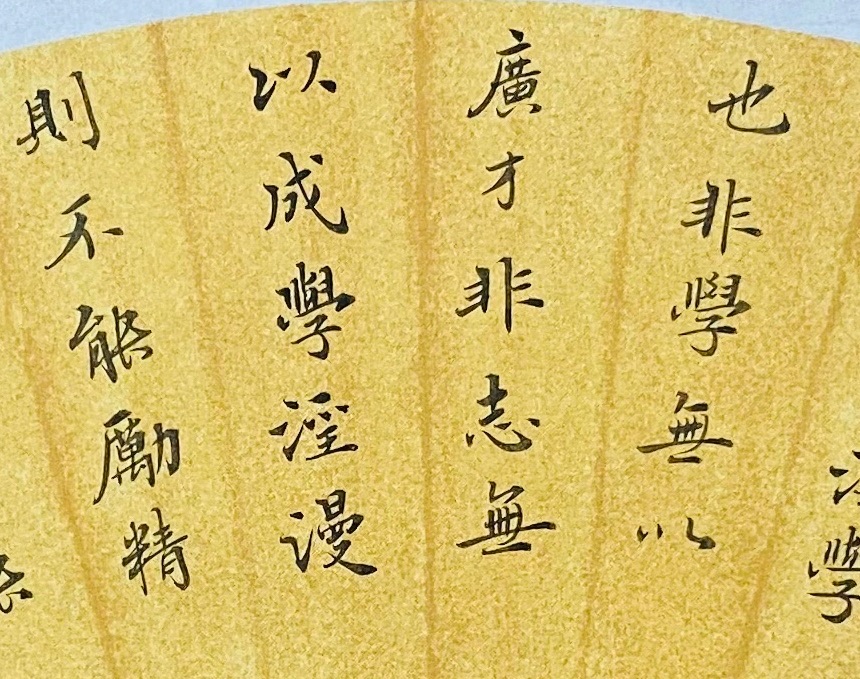 學
也非學無以
廣才非志無
以成學淫漫
則不能勵精